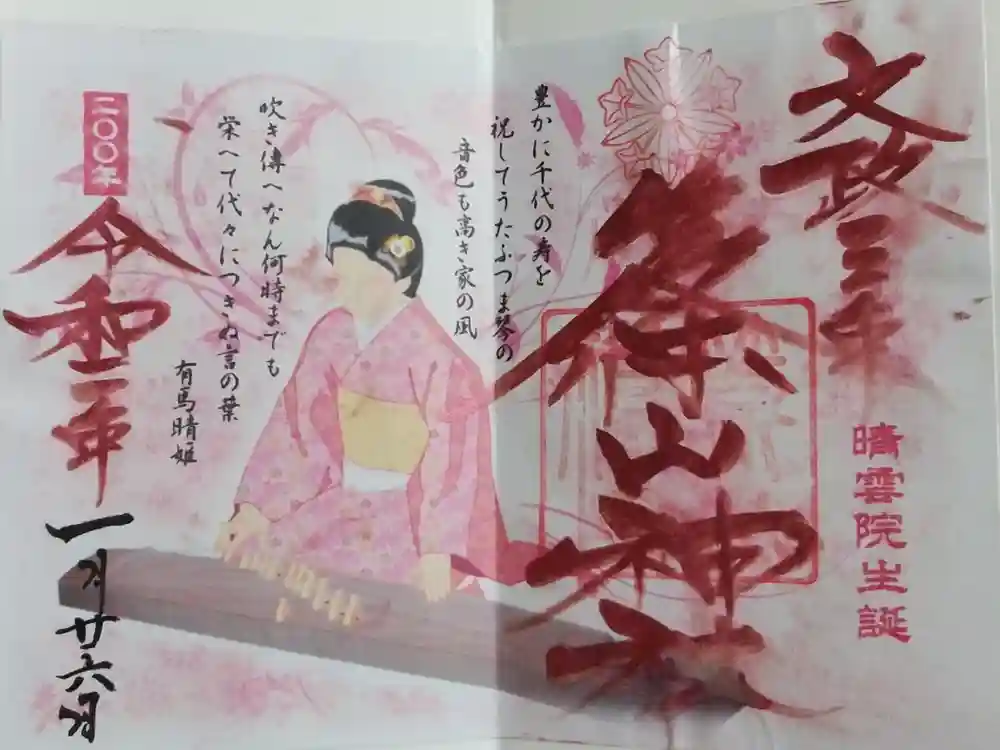 文政三年
晴雲院生誕
篠山神社
豊かに千代の寿を
祝してうたふつま琴の
音色も高き家の風
吹き傳へなん何時までも
栄へて代々につきぬ言の葉
有馬晴姫
二〇〇年
令和二年
一月廿六日